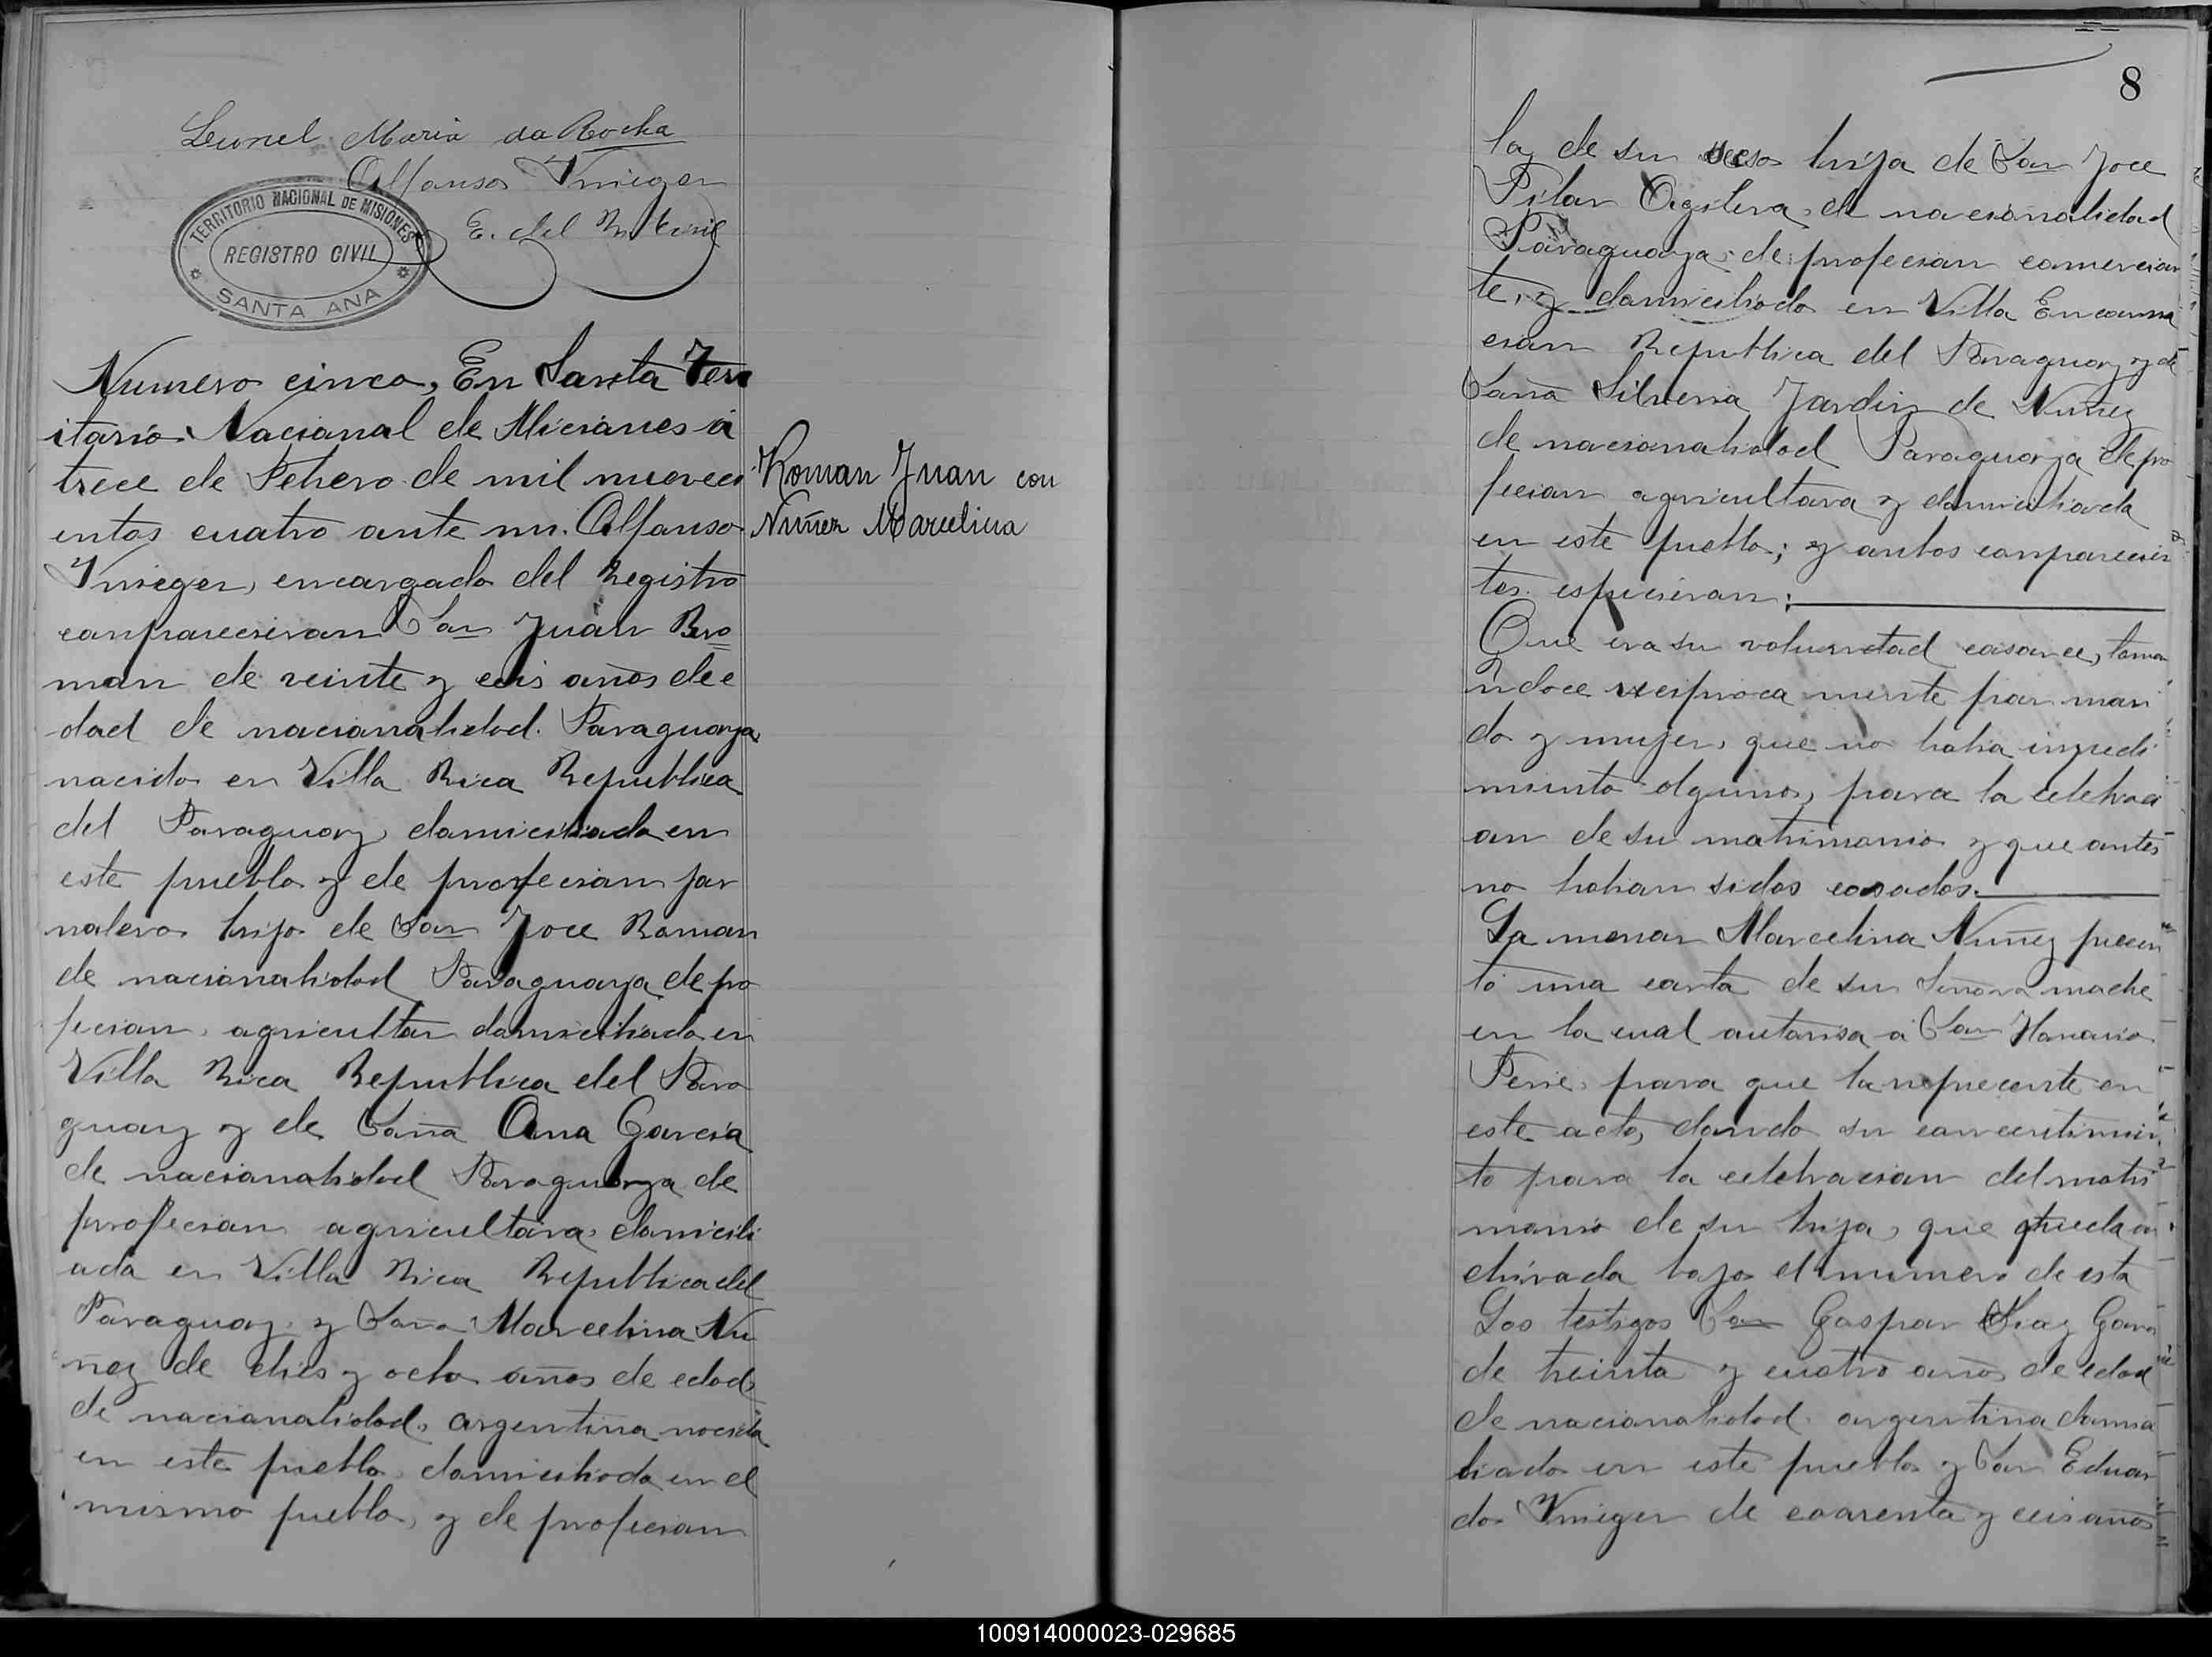 Leonel Maria da Rocha
Alfonso Krieger
E. del R. Civil
TERRITORIO NACIONAL DE MISIONES
REGISTRO CIVIL
SANTA ANA
Numero cinco, En Santa Terr
itorio Nacional de Miciones á
trece de Febrero de mil noveci
entos cuatro ante mi. Alfonso
Krieger, encargado del Registro
conparecieron Don Juan Ro
man de veinte y ceis años de e
dad de nacionalidad Paraguaya
nacido en Villa Rica Republica
del Paraguay, domiciliado en
este pueblo y de profecion jor
nalero hijo de Don Joce Roman
de nacionalidad Paraguaya de pro
fecion agricultor domiciliado en
Villa Rica Republica del Para
guay y de Doña Ana Garcia
de nacionalidad Paraguaya de
profecion agricultora domicili
ada en Villa Rica Republica del
Paraguay y Doña Marcelina Nu
ñez de dies y ocho años de edad
de nacionalidad argentina nacida
en este pueblo domiciliada en el
mismo pueblo, y de profecion
Roman Juan con
Nuñez Marcelina
8
la de su sexo hija de Don Joce
Pilar de nacionalidad
Paraguaya de profecion comercian
te, y domiciliado en Villa Encarna
cion Republica del Paraguay y de
Doña Silveria Jardin de Nuñez
de nacionalidad Paraguaya de pro
fecion agricultora y domiciliada
en este pueblo; y anbos conparecien
tes espucieron:
Que era su voluntad casarce, toma
ndoce reciproca mente por mari
do y mujer, que no habia inpedi
miento alguno, para la celebraci
on de su matrimonio y que antes
no habian sidos casados.
La menor Marcelina Nuñez precen
tó una carta de su Señora madre
en la cual autorisa á Don Honorio
para que la reprecente en
este acto, dando su concentimien
to para la celebracion del matri
monio de su hija, que queda ar
chivada bajo el numero de esta
Los testigos Don Gaspar Diaz
de treinta y cuatro años de edad
de nacionalidad argentina domici
liado en este pueblo y Don Eduar
do Krieger de coarenta y ceis años
100914000023-029685